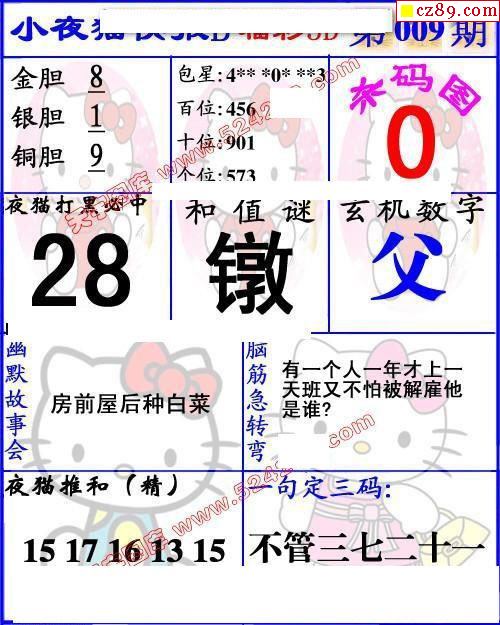 cz89.com
小夜猫快报D 福彩3D 第009期
金胆 8
银胆 1
铜胆 9
包星:4** *0* **3
百位:456
十位:901
个位:573
杀码图
0
夜猫打黑必中
28
和值谜
镦
玄机数字
父
幽默故事会
房前屋后种白菜
脑筋急转弯
有一个人一年才上一
天班又不怕被解雇他
是谁?
夜猫推和(精)
15 17 16 13 15
一句定三码:
不管三七二十一